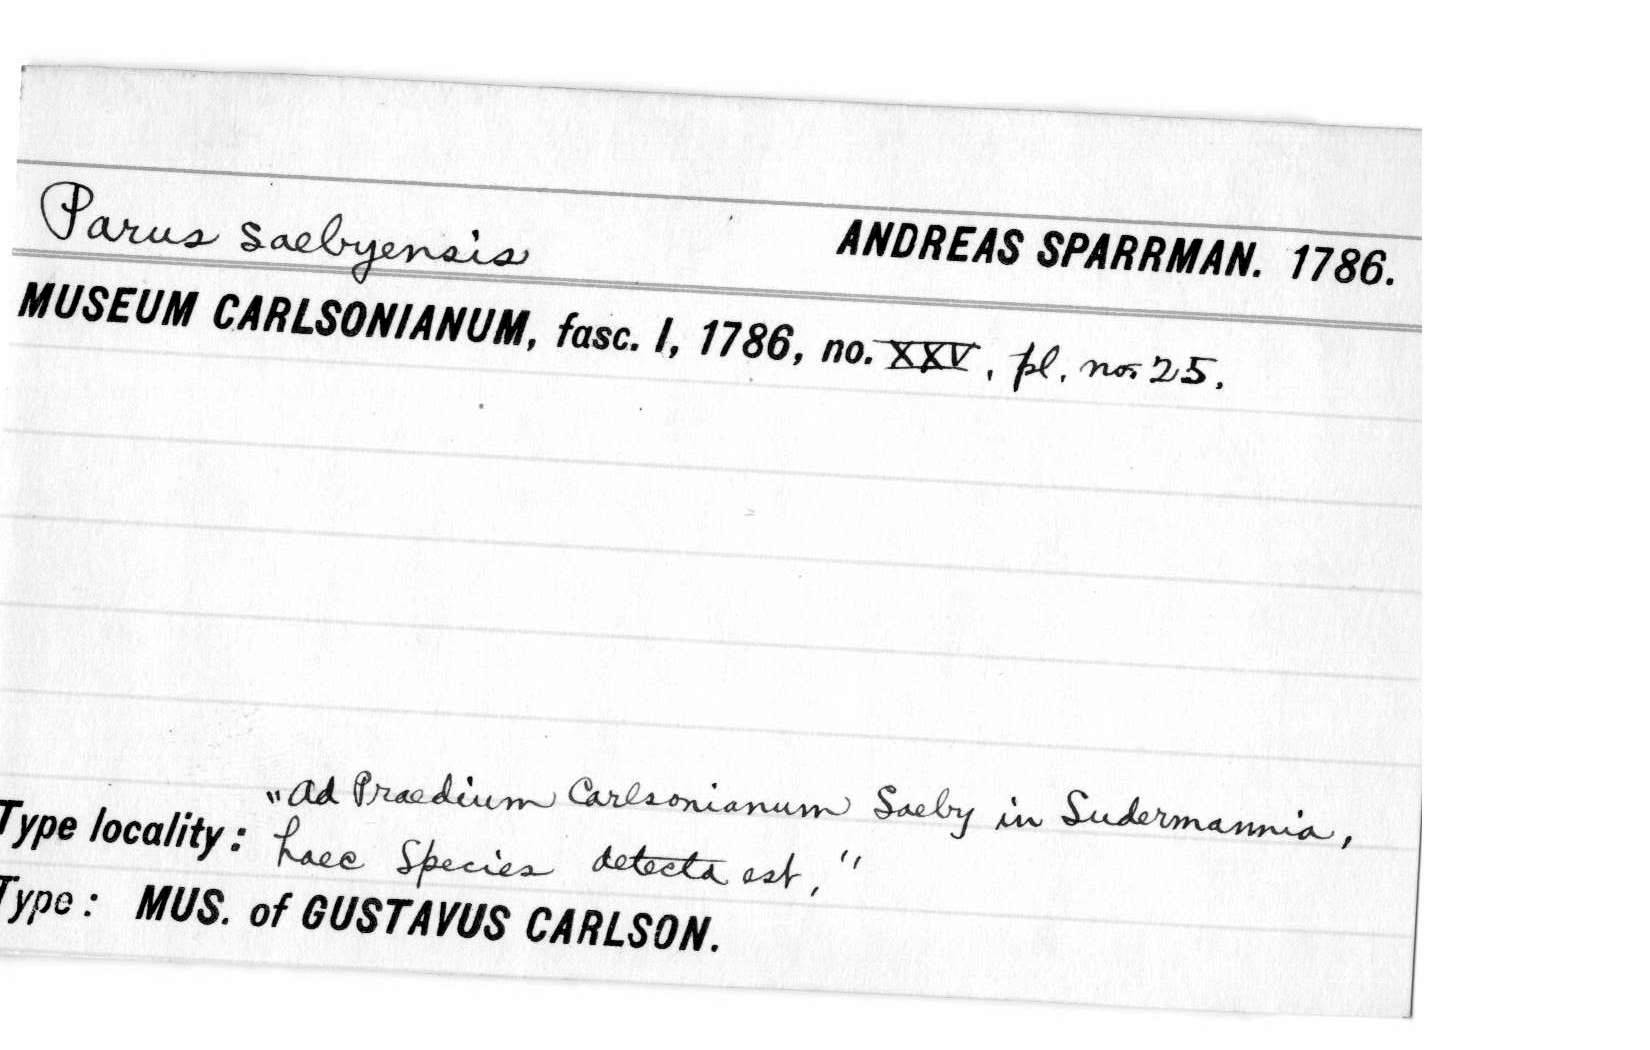 Parus saebyensis ANDREAS SPARRMAN. 1786.
MUSEUM CARLSONIANUM, fasc. I, 1786, no. XXV, pl. no. 25.
"ad Praedium Carlsonianum Saeby in Sudermannia,
Type locality: haec Species detecta est,"
Type: MUS. of GUSTAVUS CARLSON.